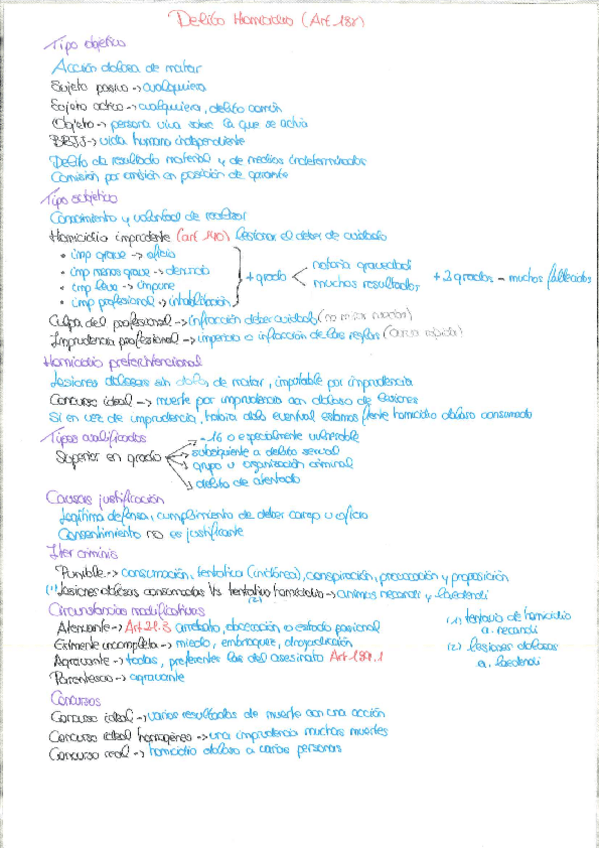 Delito Homicidio (Art 138)
Tipo objetivo
Acción dolosa de matar
Sujeto pasivo → cualquiera
Sujeto activo → cualquiera, delito común
Objeto → persona viva sobre la que se actúa
BBJJ → vida humana independiente
Delito de resultado material y de medios indeterminados
Comisión por omisión en posición de garante
Tipo subjetivo
Conocimiento y voluntad de realizar
Homicidio imprudente (art 140) lesionar el deber de cuidado
• imp grave → oficio
• imp menos grave → denuncia
• imp leve → impune
• imp profesional → inhabilitación
+ grado
notoria gravedad
muchos resultados
+ 2 grados - muchos fallecidos
Culpa del profesional → infracción deber cuidado
Imprudencia profesional → impericia o infracción de las reglas
Homicidio preterintencional
Lesiones dolosas sin dolo, de matar, imputable por imprudencia
Concurso ideal → muerte por imprudencia con doloso de lesiones
Si en vez de imprudencia, habría dolo eventual estamos frente homicidio doloso consumado
Tipos cualificados
Superior en grado
-16 o especialmente vulnerable
subsiguiente a delito sexual
grupo u organización criminal
delito de atentado
Causas justificación
Legítima defensa, cumplimiento de deber cargo u oficio
Consentimiento no es justificante
Iter criminis
Punible → consumación, tentativa (inidónea), conspiración, provocación y proposición
(1) Lesiones dolosas consumadas Vs tentativa homicidio → animus necandi y laedendi
(2)
Circunstancias modificativas
Atenuante → Art 21.3 arrebato, obcecación o estado pasional
Eximente incompleta → miedo, embriaguez, drogadicción
Agravante → todas, preferentes las del asesinato Art 139.1
Parentesco → agravante
(1) tentativa de homicidio
a. necandi
(2) lesiones dolosas
a. laedendi
Concursos
Concurso ideal → varios resultados de muerte con una acción
Concurso ideal homogéneo → una imprudencia muchas muertes
Concurso real → homicidio doloso a varias personas